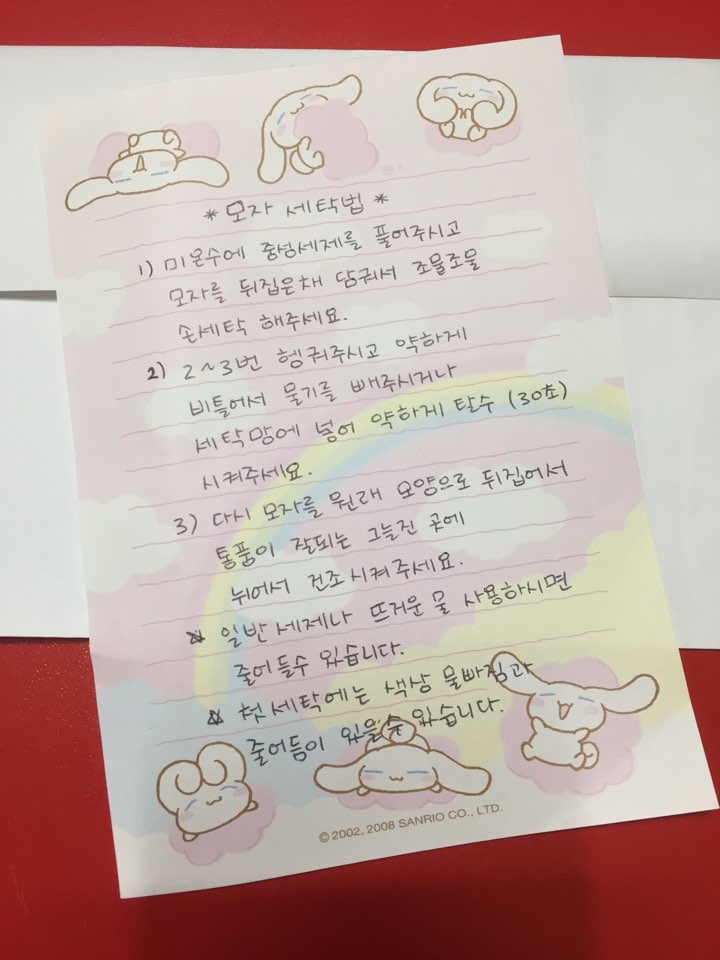 * 모자 세탁법 *
1) 미온수에 중성세제를 풀어주시고
모자를 뒤집은채 담궈서 조물조물
손세탁 해주세요.
2) 2~3번 헹궈주시고 약하게
비틀어서 물기를 빼주시거나
세탁망에 넣어 약하게 탈수 (30초)
시켜주세요.
3) 다시 모자를 원래 모양으로 뒤집에서
통풍이 잘되는 그늘진 곳에
뉘어서 건조시켜주세요.
일반세제나 뜨거운 물 사용하시면
줄어들수 있습니다.
첫 세탁에는 색상 물빠짐과
줄어듬이 있을수 있습니다.
© 2002, 2008 SANRIO CO., LTD.